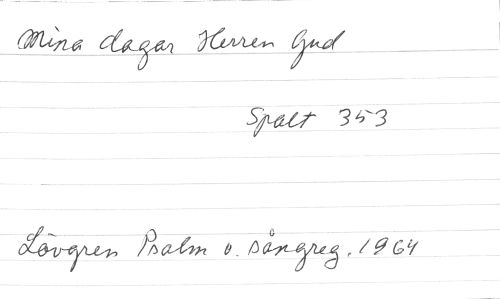 Mina dagar Herren Gud
Spalt 353
Lövgren Psalm o. sångreg. 1964